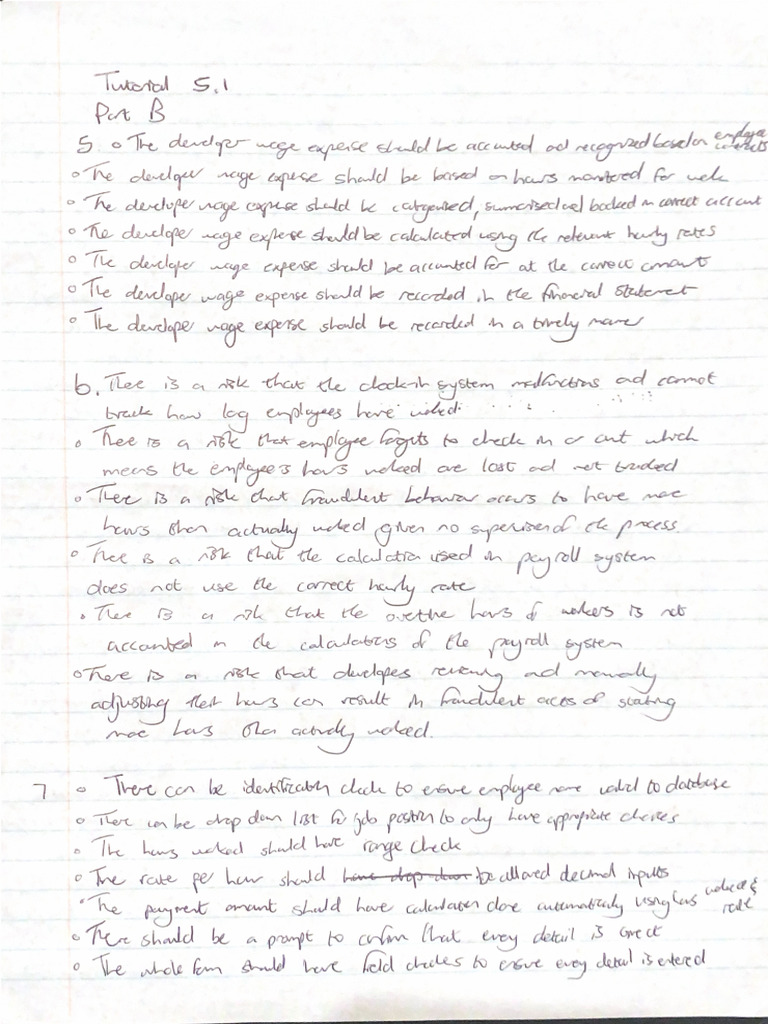 Tutorial 5.1
Part B
5. • The developer wage expense should be accounted and recognized based on employee contracts
• The developer wage expense should be based on hours monitored for week
• The developer wage expense should be categorised, summarised and booked in correct account
• The developer wage expense should be calculated using the relevant hourly rates
• The developer wage expense should be accounted for at the correct amount
• The developer wage expense should be recorded in the financial statement
• The developer wage expense should be recorded in a timely manner
6. There is a risk that the clock-in system malfunctions and cannot
track how long employees have worked.
• There is a risk that employee forgets to check in or out which
means the employees hours worked are lost and not tracked
• There is a risk that fraudulent behaviour occurs to have more
hours than actually worked given no supervision of the process.
• There is a risk that the calculation used in payroll system
does not use the correct hourly rate
• There is a risk that the overtime hours of workers is not
accounted in the calculations of the payroll system
• There is a risk that developers reviewing and manually
adjusting their hours can result in fraudulent acts of stating
more hours than actually worked.
7 • There can be identification check to ensure employee name valid to database
• There can be drop down list for job position to only have appropriate choices
• The hours worked should have range check
• The rate per hour should have drop down be allowed decimal inputs
• The payment amount should have calculation done automatically using hours worked & rate
• There should be a prompt to confirm that every detail is correct
• The whole form should have field checks to ensure every detail is entered